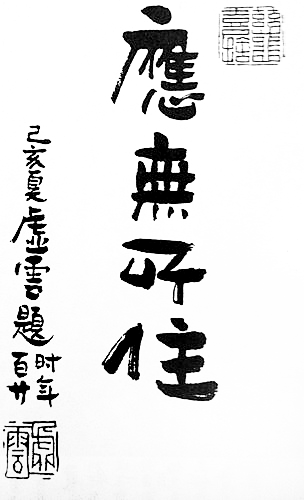 應無所住
己亥夏虚雲題
时年
百廿
虛雲